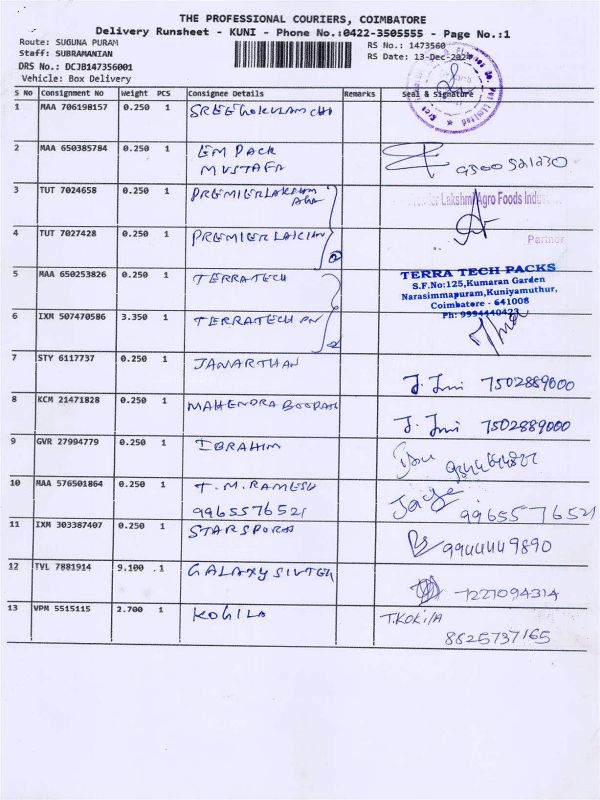 THE PROFESSIONAL COURIERS, COIMBATORE
Delivery Runsheet - KUNI - Phone No.:0422-3505555 - Page No.:1
Route: SUGUNA PURAM RS No.: 1473560
Staff: SUBRAMANIAN RS Date: 13-Dec-2024
DRS No.: DCJB147356001
Vehicle: Box Delivery
S No Consignment No Weight PCS Consignee Details Remarks Seal & Signature
1 MAA 706198157 0.250 1 SREEGOKULAM CHI
2 MAA 650385784 0.250 1 EM PACK
MUSTAFA 9500521230
3 TUT 7024658 0.250 1 PREMIER LAKSHMI
Lakshmi Agro Foods
4 TUT 7027428 0.250 1 PREMIER
Partner
5 MAA 650253826 0.250 1 TERRATECH
TERRA TECH PACKS
S.F.No:125,Kumaran Garden
Narasimmapuram,Kuniyamuthur,
Coimbatore - 641008
Ph: 9994440423
6 IXM 507470586 3.350 1 TERRATECH
7 STY 6117737 0.250 1 JANARTHAN 7502889000
8 KCM 21471828 0.250 1 MAHENDRA 7502889000
9 GVR 27994779 0.250 1 IBRAHIM
10 MAA 576501864 0.250 1 T.M.RAMESH
9965576521 9965576521
11 IXM 303387407 0.250 1 STARSPORTS 9944449890
12 TVL 7881914 9.100 1 GALAXY 7221094314
13 VPM 5515115 2.700 1 KOKILA T.Kokila
8825737165